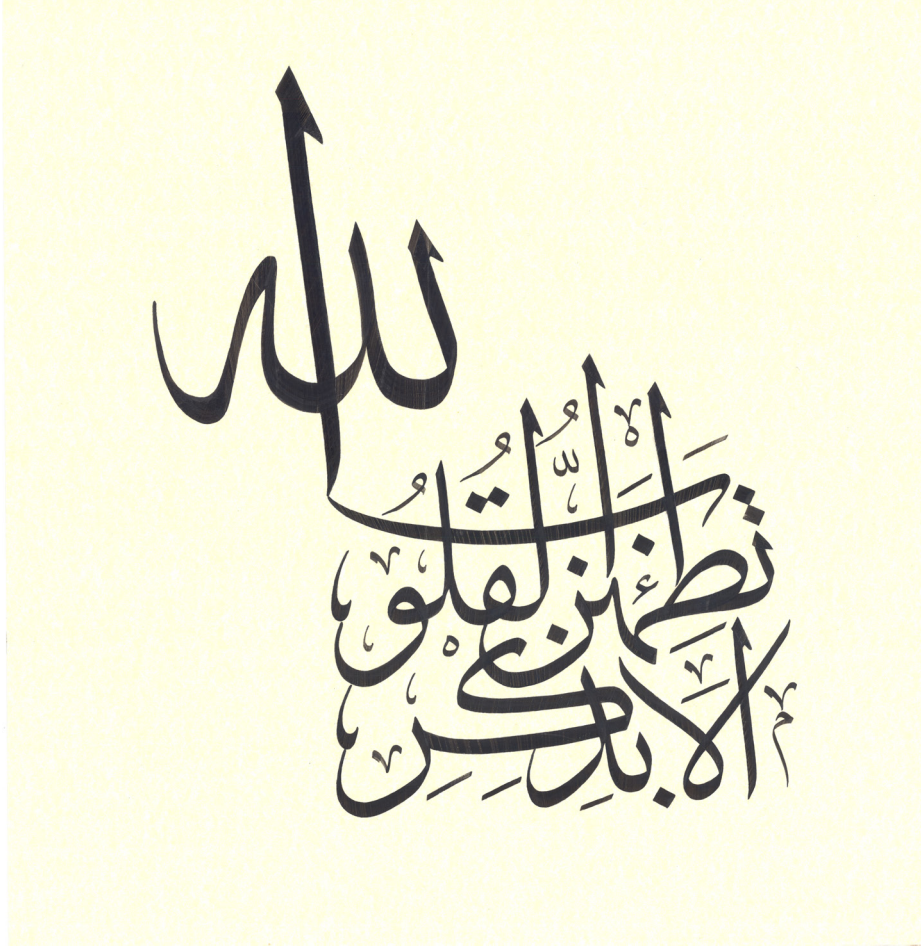 الا بذكر
الله
تطمئن القلوب